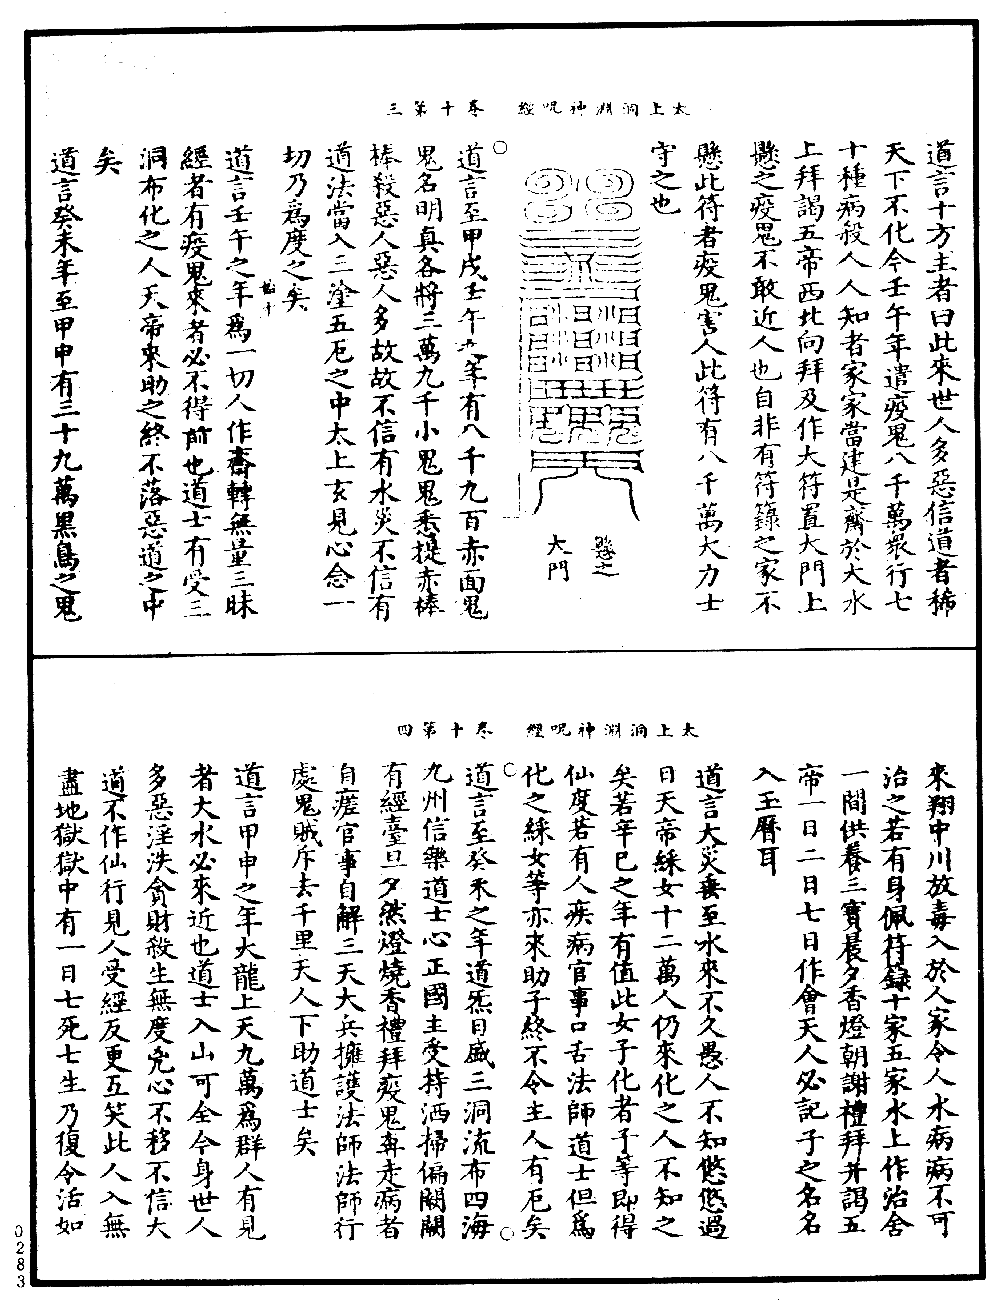 太上洞淵神呪經　卷十第三
道言十方主者曰此來世人多惡信道者稀
天下不化今壬午年遣疫鬼八千萬衆行七
十種病殺人人知者家家當建是齋於大水
上拜謁五帝西北向拜及作大符置大門上
懸之疫鬼不敢近人也自非有符籙之家不
懸此符者疫鬼害人此符有八千萬大力士
守之也
懸之
大門
道言至甲戌壬午之年有八千九百赤面鬼
鬼名明真各將三萬九千小鬼鬼悉提赤棒
棒殺惡人惡人多故故不信有水災不信有
道法當入三塗五厄之中太上玄見心念一
切乃爲度之矣
道言壬午之年爲一切人作齋轉無量三昧
經者有疫鬼來者必不得前也道士有受三
洞布化之人天帝來助之終不落惡道之中
矣
道言癸未年至甲申有三十九萬黑鳥之鬼
太上洞淵神呪經　卷十第四
來翔中川放毒入於人家令人水病病不可
治之若有身佩符籙十家五家水上作治舍
一間供養三寶晨夕香燈朝謝禮拜并謁五
帝一日二日七日作會天人必記子之名名
入玉曆耳
道言大災垂至水來不久愚人不知悠悠過
日天帝綵女十二萬人仍來化之人不知之
矣若辛巳之年有值此女子化者子等即得
仙度若有人疾病官事口舌法師道士但爲
化之綵女等亦來助子終不令主人有厄矣
道言至癸未之年道炁日盛三洞流布四海
九州信樂道士心正國主受持洒掃偏闕闕
有經臺旦夕然燈燒香禮拜疫鬼奔走病者
自瘥官事自解三天大兵擁護法師法師行
處鬼賊斥去千里天人下助道士矣
道言甲申之年大龍上天九萬爲群人有見
者大水必來近也道士入山可全今身世人
多惡淫泆貪財殺生無度兇心不移不信大
道不作仙行見人受經反更互笑此人入無
盡地獄獄中有一日七死七生乃復令活如
0283